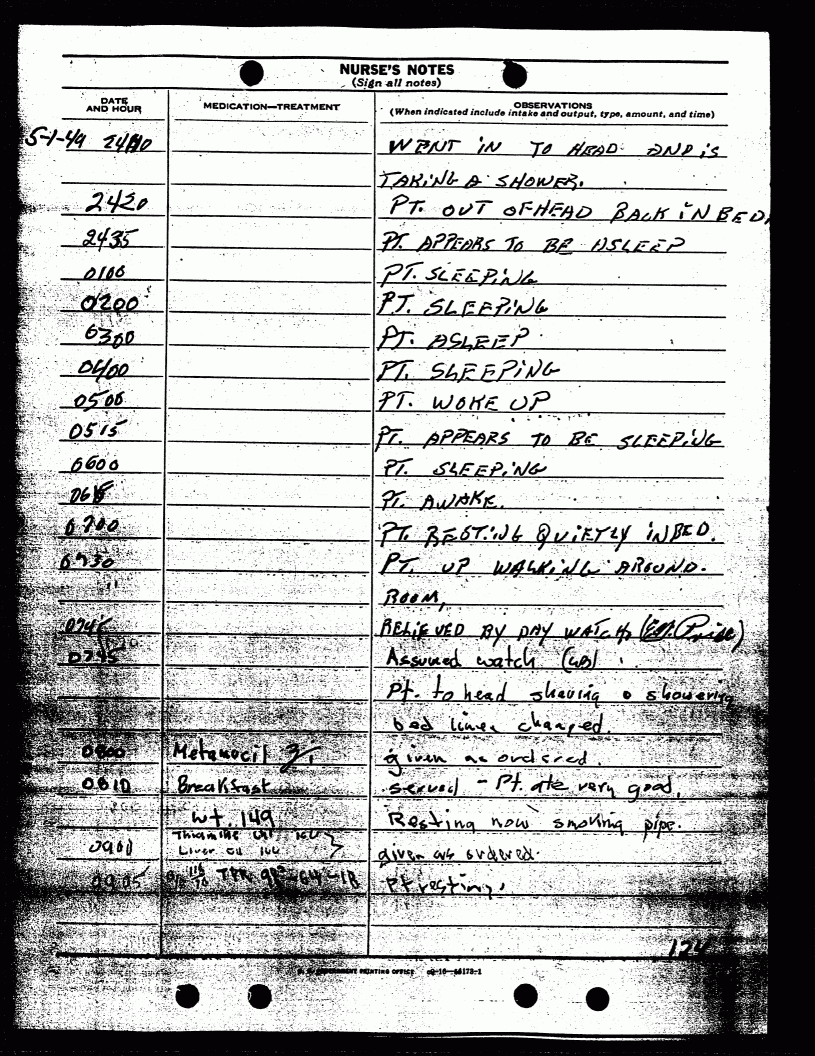 NURSE'S NOTES
(Sign all notes)
DATE AND HOUR MEDICATION—TREATMENT OBSERVATIONS
(When indicated include intake and output, type, amount, and time)
5-1-49 2410 WENT IN TO HEAD AND iS
TAKiNG A SHOWER.
2420 PT. OUT OF HEAD BACK iN BED.
2435 PT. APPEARS TO BE ASLEEP
0100 PT. SLEEPiNG
0200 PT. SLEEPiNG
0300 PT. ASLEEP
0400 PT. SLEEPiNG
0500 PT. WOKE UP
0515 PT. APPEARS TO BE SLEEPiNG
0600 PT. SLEEPiNG
PT. AWAKE.
0700 PT. RESTiNG QUiETLY iN BED.
0730 PT. UP WALKiNG AROUND.
" ROOM,
0745 RELiEVED BY DAY WATCH
0745 Assumed watch
Pt. to head shaving & showering
bed linen changed.
0800 Metamucil given as ordered.
0810 Breakfast served - Pt. ate very good.
wt. 149 Resting now smoking pipe.
0900 Thiamine
Liver given as ordered.
0905 TPR Pt resting.
124
PRINTING OFFICE